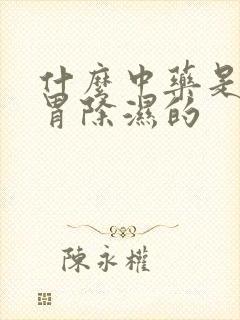 什麼中藥是
胃除濕的
陳永權